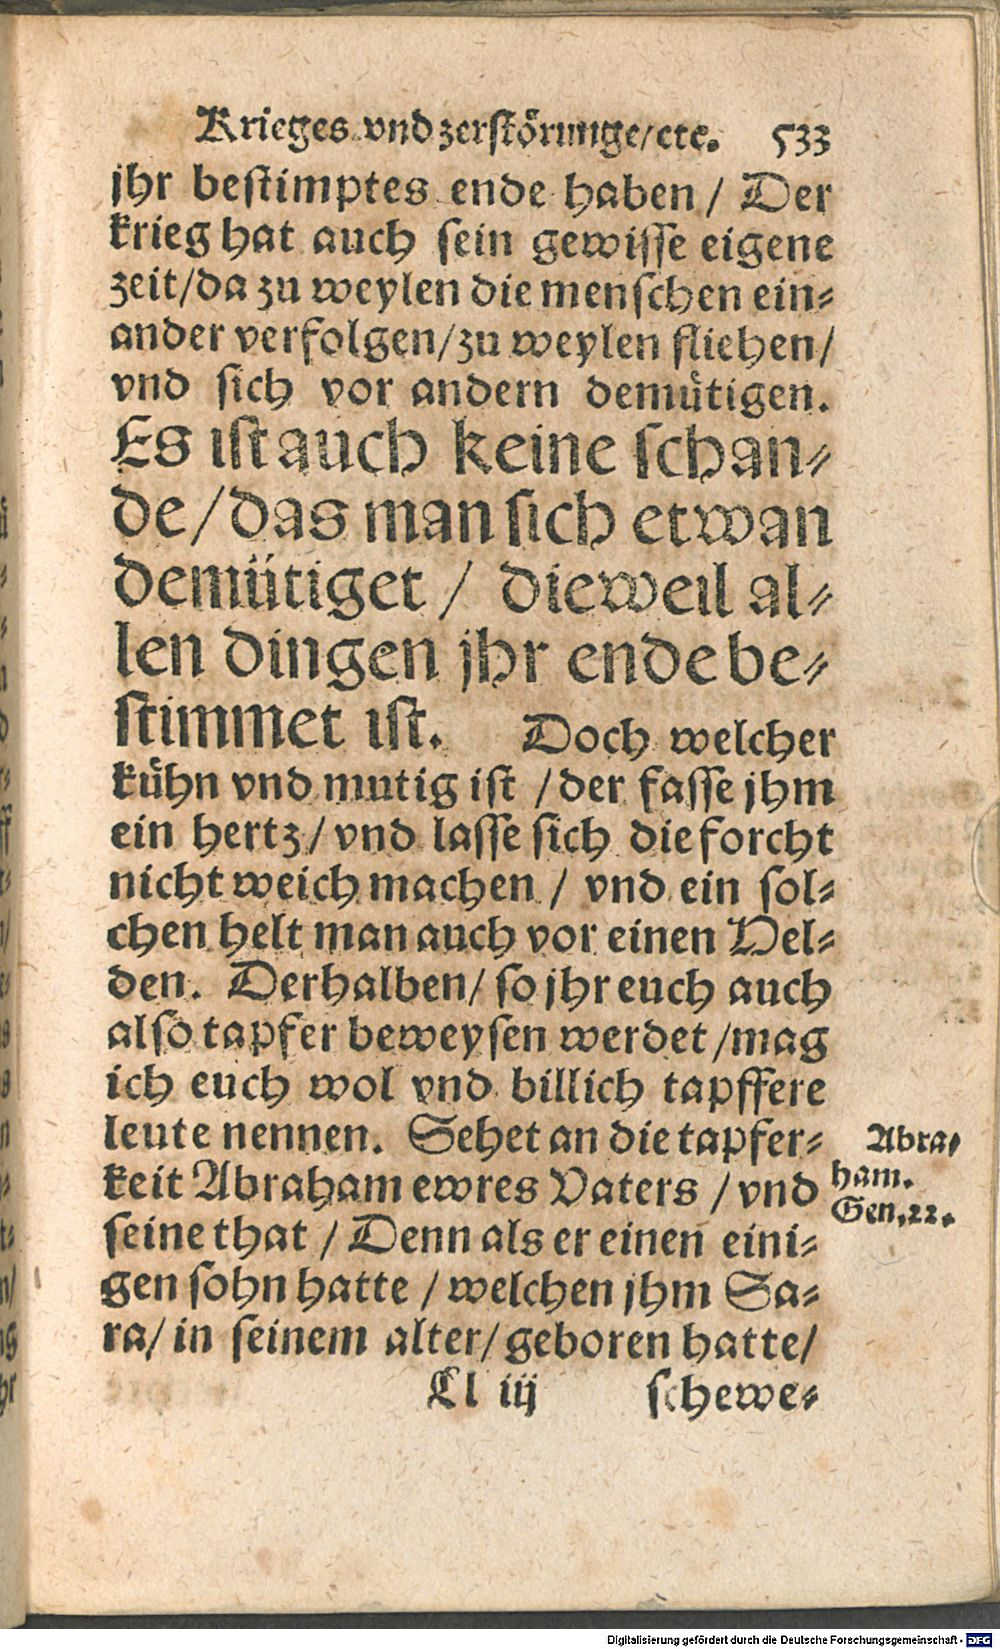 Krieges vnd zerstörunge/etc. 533
jhr bestimptes ende haben / Der
krieg hat auch sein gewisse eigene
zeit/da zu weylen die menschen ein⸗
ander verfolgen/zu weylen fliehen/
vnd sich vor andern demuͤtigen.
Es ist auch keine schan⸗
de/das man sich etwan
demütiget / dieweil al⸗
len dingen jhr ende be⸗
stimmet ist. Doch welcher
kuͤhn vnd mutig ist /der fasse jhm
ein hertz/ vnd lasse sich die forcht
nicht weich machen / vnd ein sol⸗
chen helt man auch vor einen Hel⸗
den. Derhalben/ so jhr euch auch
also tapfer beweysen werdet /mag
ich euch wol vnd billich tapffere
leute nennen. Sehet an die tapfer⸗
keit Abraham ewres Vaters / vnd
seine that / Denn als er einen eini⸗
gen sohn hatte / welchen jhm Sa⸗
ra/ in seinem alter/ geboren hatte/
Ll iij schewe⸗
Abra⸗
ham.
Gen.22.
Digitalisierung gefördert durch die Deutsche Forschungsgemeinschaft - DFG